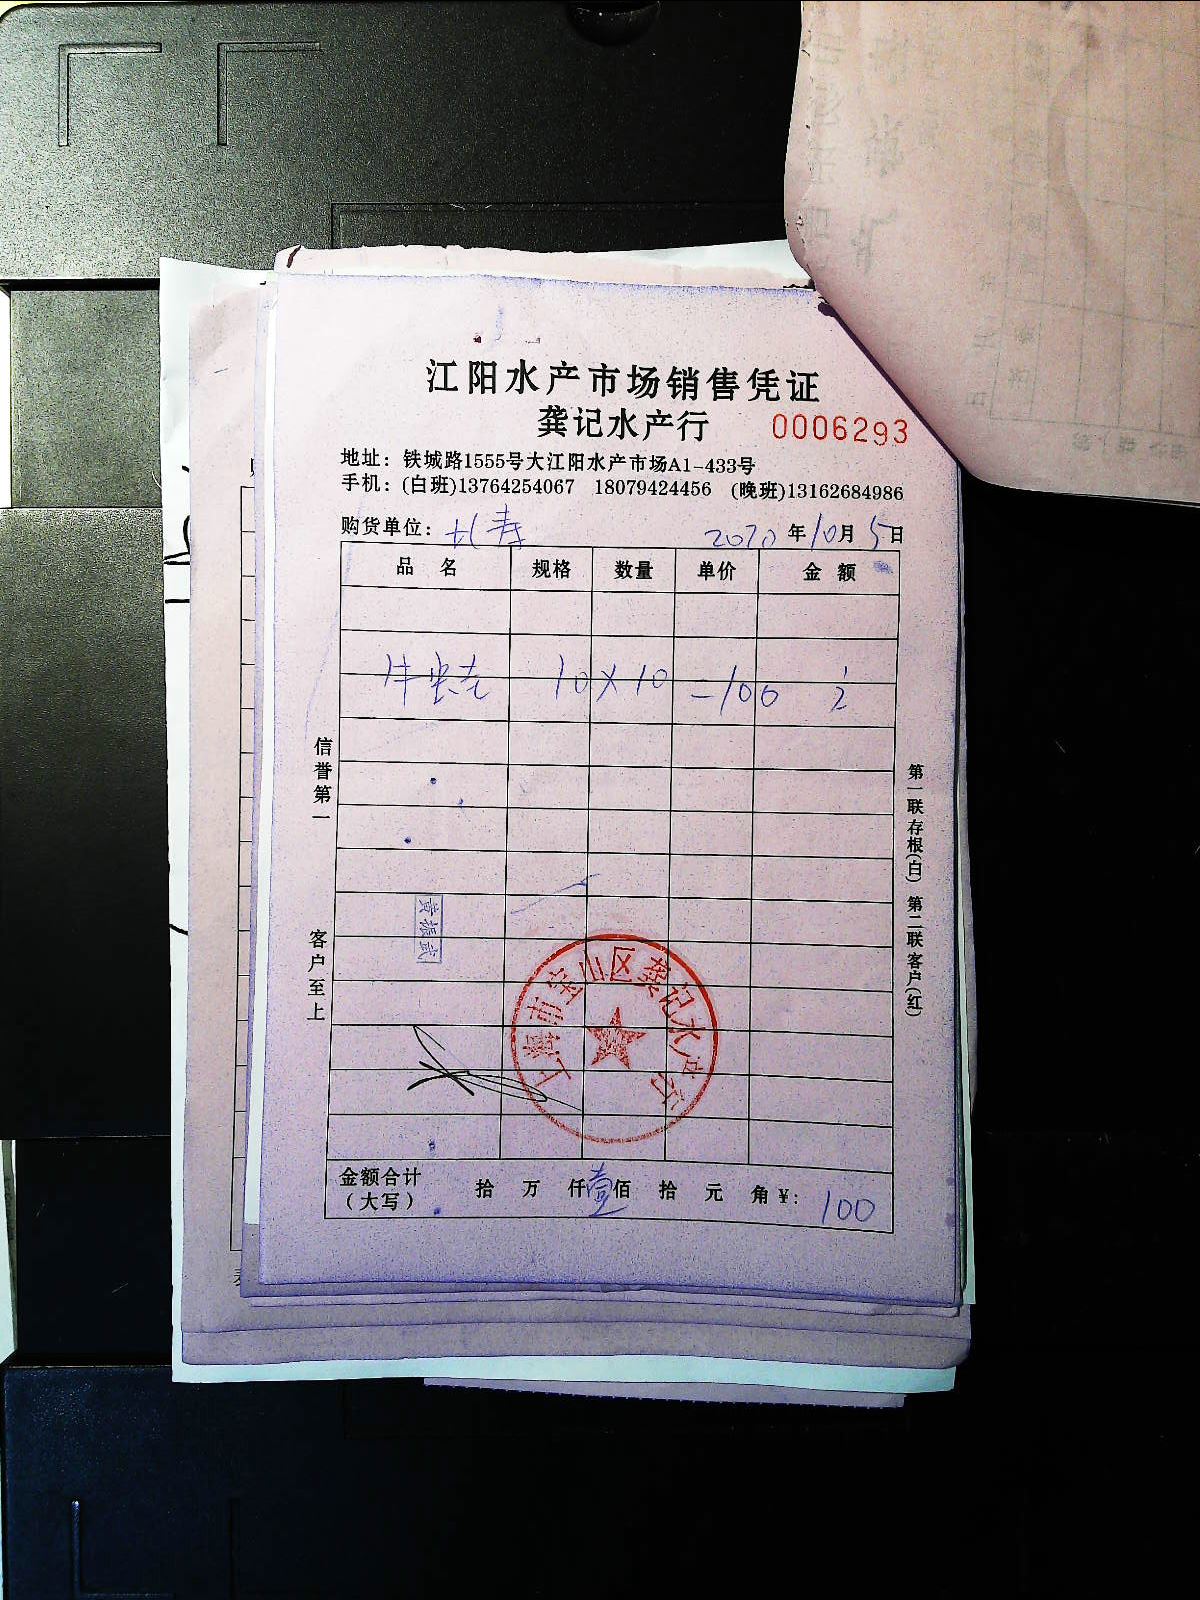 江阳水产市场销售凭证
龚记水产行 0006293
地址：铁城路1555号大江阳水产市场A1-433号
手机：(白班)13764254067 18079424456 (晚班)13162684986
购货单位：长寿 2020年10月5日
品名 规格 数量 单价 金额
10×10 =100
信誉第一
客户至上
黄振武
上海市宝山区龚记水产行
第一联存根(白) 第二联客户(红)
金额合计（大写） 拾 万 仟 壹佰 拾 元 角 ¥：100